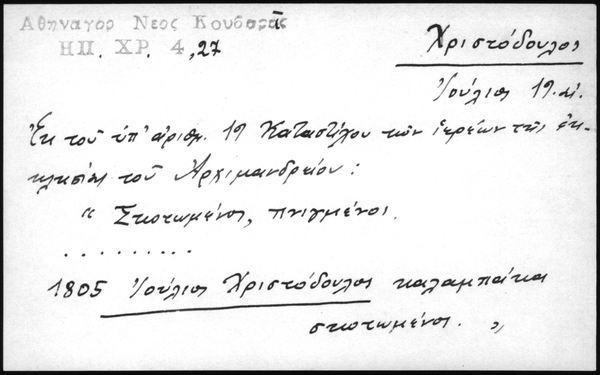 Αθηναγορ Νεος Κουβαρᾶς
ΗΠ. ΧΡ. 4, 27
Χριστόδουλος
Ἰούλιος 19. αἰ.
Ἐκ τοῦ ὑπ' ἀριθμ. 19 Καταστίχου τῶν ἱερέων τῆς ἐκ-
κλησίας τοῦ Ἀρχιμανδρείου:
" Σκοτωμένοι, πνιγμένοι.
.........
1805 Ἰούλιος Χριστόδουλος καλαμπάκα
σκοτωμένος. "